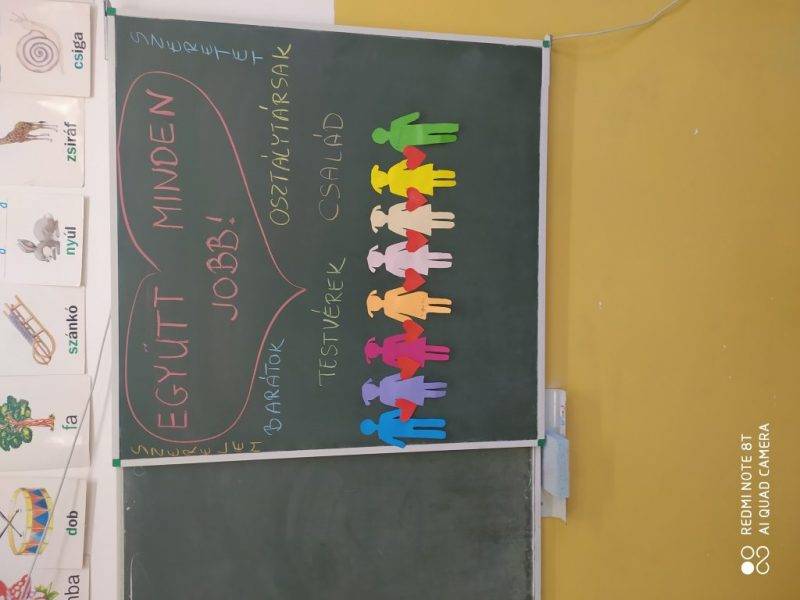 mba
dob
fa
szánkó
nyúl
zsiráf
csiga
SZERELEM
EGYÜTT MINDEN
JOBB!
SZERETET
BARÁTOK
OSZTÁLYTÁRSAK
TESTVÉREK
CSALÁD
REDMI NOTE 8T
AI QUAD CAMERA